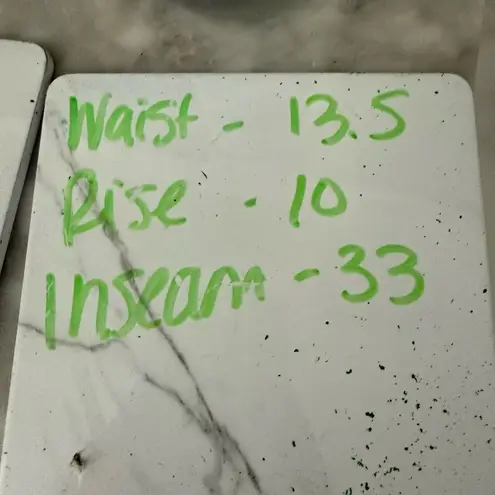 Waist - 13.5
Rise - 10
Inseam - 33